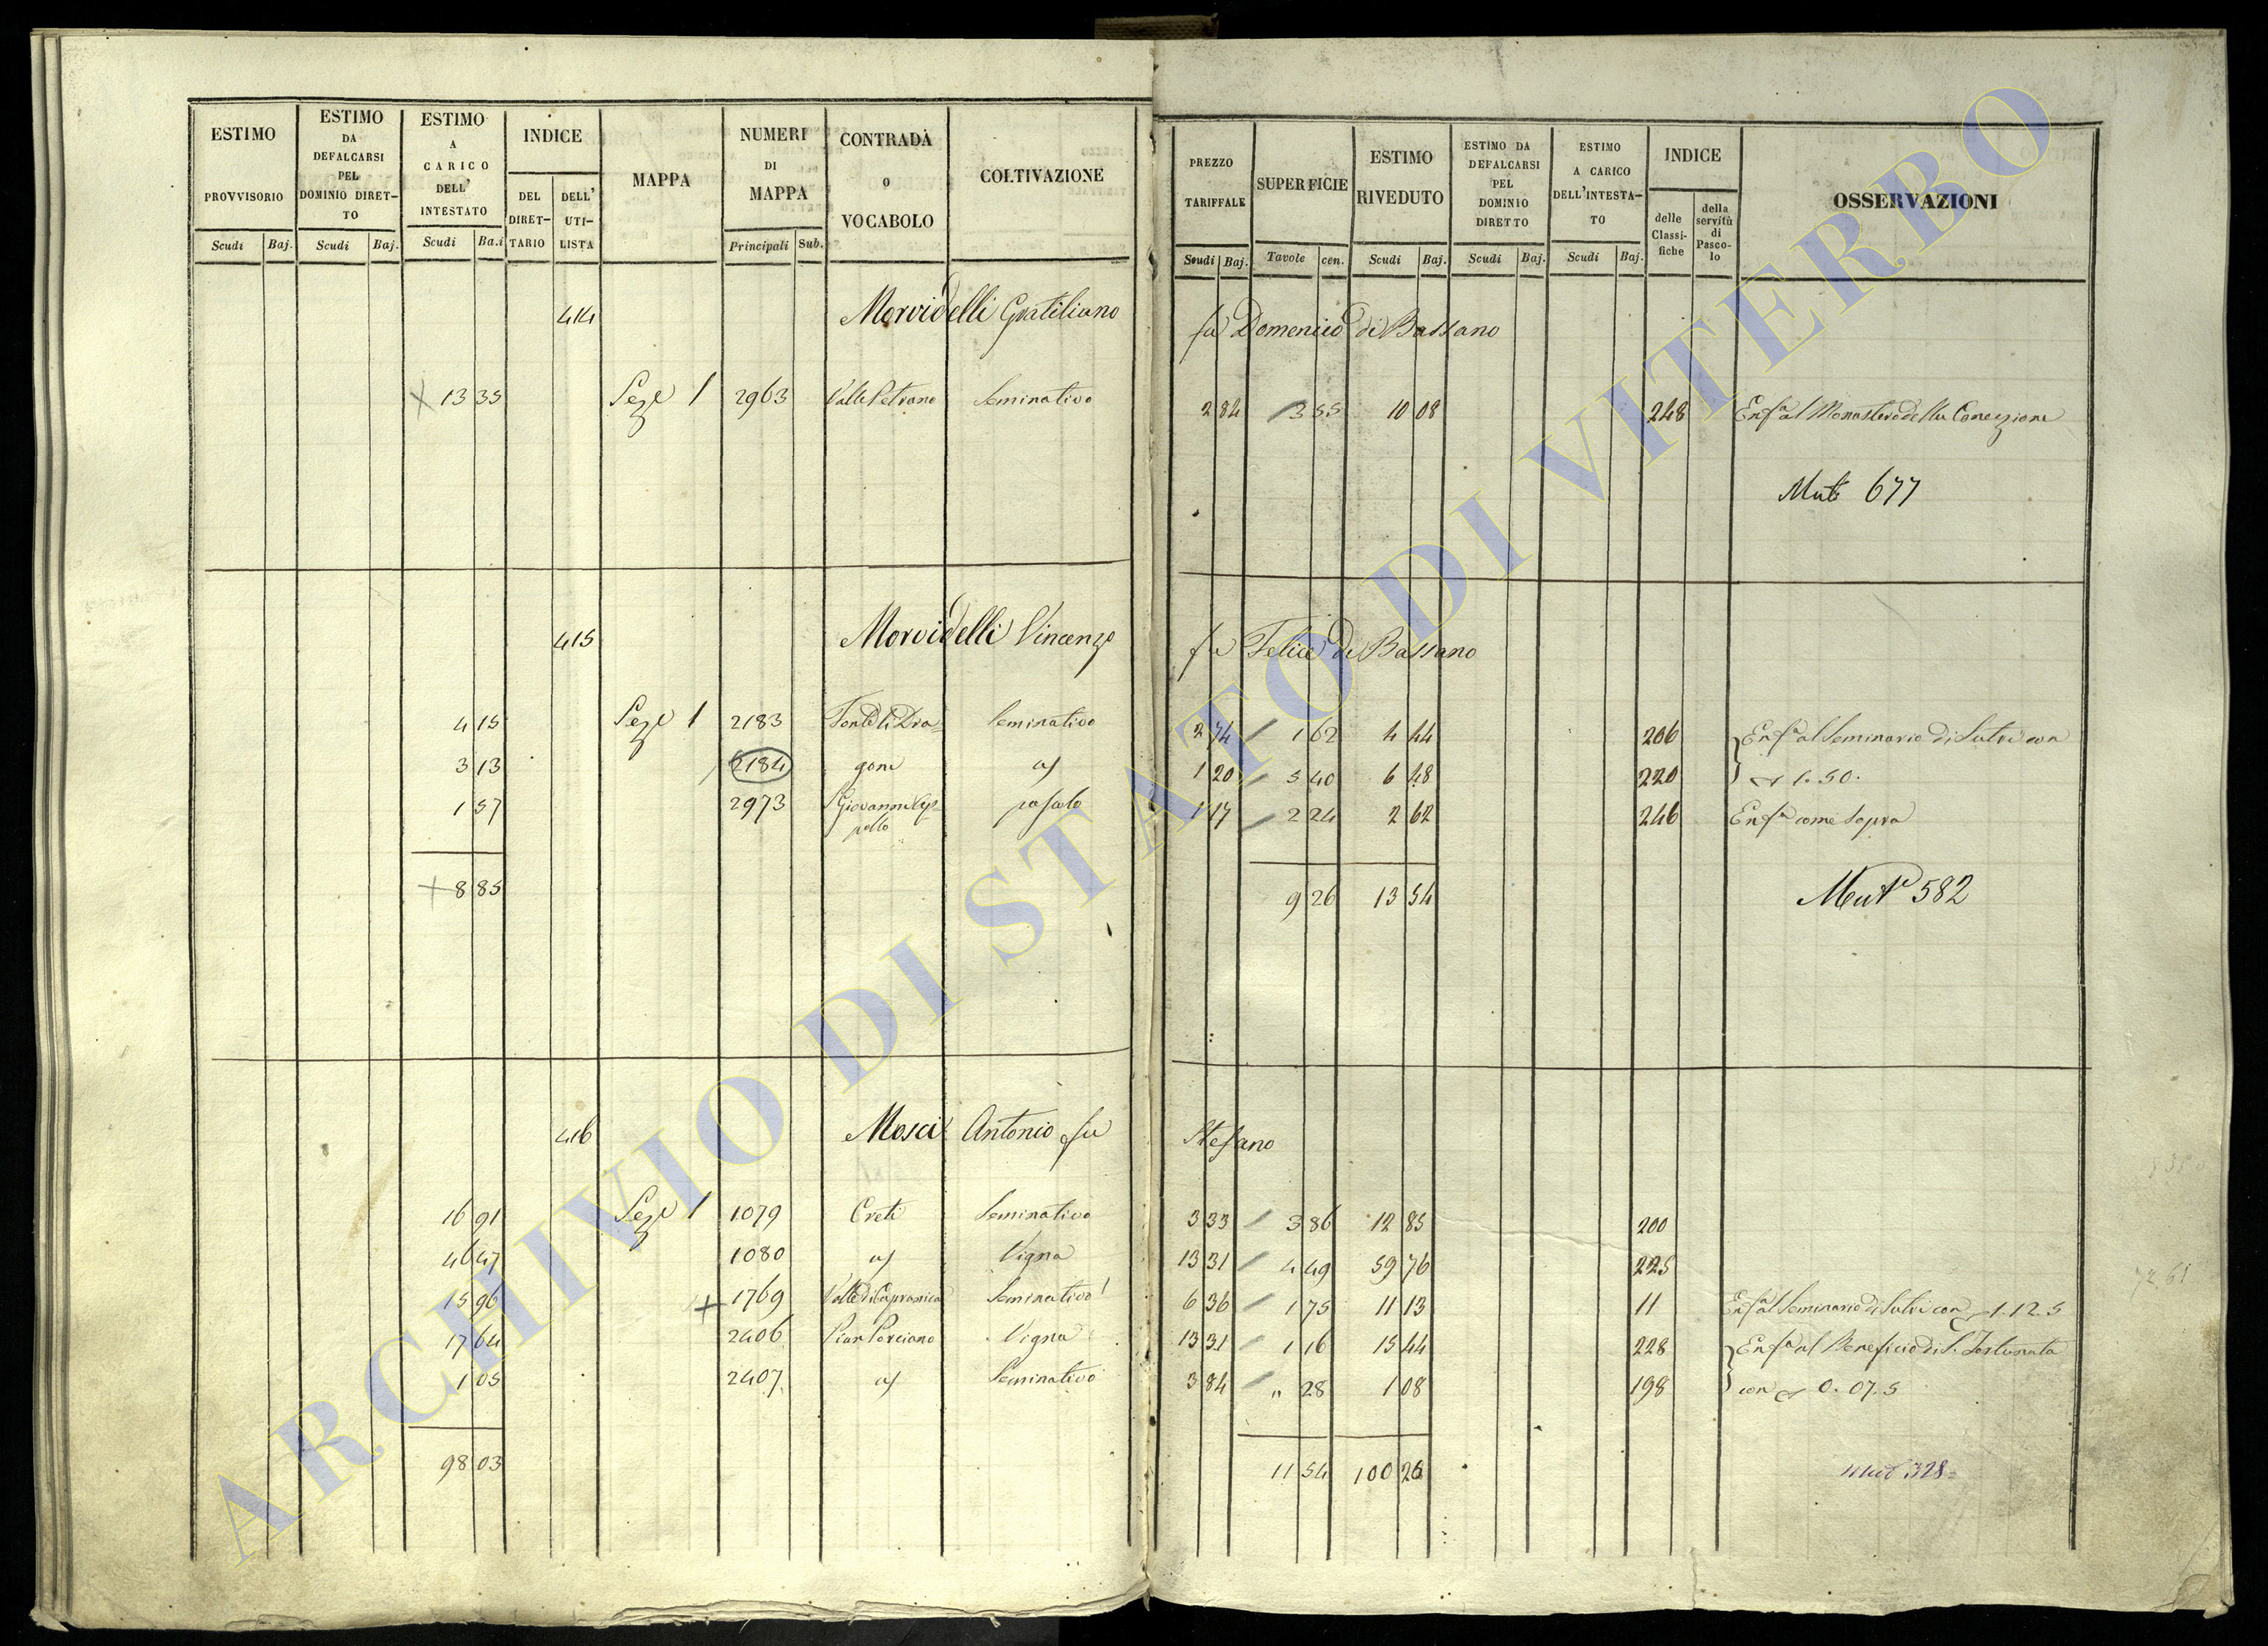 ESTIMO PROVVISORIO
Scudi Baj.
ESTIMO DA DEFALCARSI PEL DOMINIO DIRET-TO
Scudi Baj.
ESTIMO A CARICO DELL' INTESTATO
Scudi Ba.i
INDICE
DEL DIRET-TARIO
DELL' UTI-LISTA
MAPPA
NUMERI DI MAPPA
Principali Sub.
CONTRADA O VOCABOLO
COLTIVAZIONE
PREZZO TARIFFALE
Scudi Baj.
SUPERFICIE
Tavole cen.
ESTIMO RIVEDUTO
Scudi Baj.
ESTIMO DA DEFALCARSI PEL DOMINIO DIRETTO
Scudi Baj.
ESTIMO A CARICO DELL'INTESTA-TO
Scudi Baj.
INDICE
delle Classi-fiche
della servitù di Pasco-lo
OSSERVAZIONI
414 Morvidelli Gratiliano fu Domenico di Bassano
13 35 Sez.e 1 2963 Valle Petrano Seminativo 2 84 3 55 10 08 248 Enf.a al Monastero della Concezione
Mut.e 677
415 Morvidelli Vincenzo fu Felice di Bassano
4 15 Sez.e 1 2183 Fonte di Dra= Seminativo 2 74 1 62 4 44 206 Enf.a al Seminario di Sutri con
3 13 2184 gone a/ 1 20 5 40 6 48 220 1.50.
1 57 2973 S Giovanni Cap- pascolo 1 17 2 24 2 62 246 Enf.a come Sopra
pello
8 85 9 26 13 54 Mut.e 582
416 Mosci Antonio fu Stefano
16 91 Sez.e 1 1079 Creti Seminativo 3 33 3 86 12 85 200
46 47 1080 a/ Vigna 13 31 4 49 59 76 225
15 96 1769 Valle di Capranica Seminativo 6 36 1 75 11 13 11 Enf.a al Seminario di Sutri con 1.12.5
17 64 2406 Pian Porciano Vigna 13 31 1 16 15 44 228 Enf.a al Beneficio di S. Fortunata
1 05 2407 a/ Seminativo 3 84 " 28 1 08 198 con 0.07.5
98 03 11 54 100 26 Mut.e 328=
72 61
ARCHIVIO DI STATO DI VITERBO